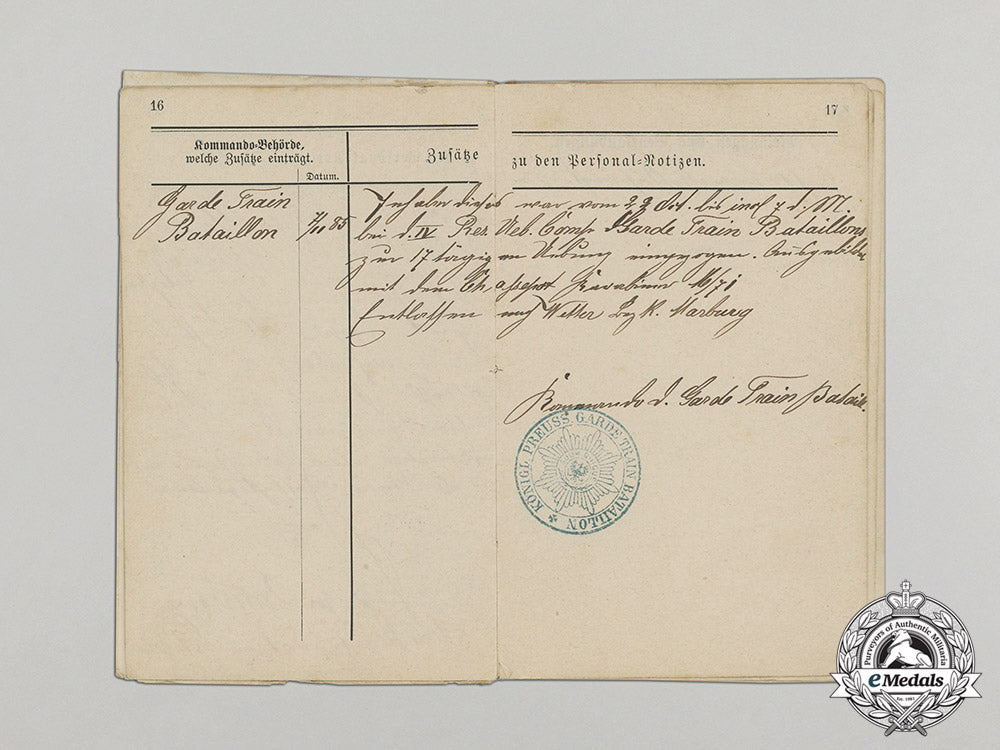 16
17
Kommando-Behörde,
welche Zusätze einträgt.
Datum.
Zusätze zu den Personal-Notizen.
Garde Train
Bataillon
7/11 85
Inhaber dieses war vom 22 Oct. bis incl 7 d. M.
bei d. IV Res. Ueb. Comp Garde Train Bataillons
zur 17 tägigen Uebung eingezogen. Ausgebildet
mit dem Chassepot Karabiner M/71
Entlassen nach Wetter Bez K. Marburg
Kommando d. Garde Train Bataill.
KÖNIGL PREUSS GARDE TRAIN BATAILLON
Purveyors of Authentic Militaria
eMedals
Est. 1981